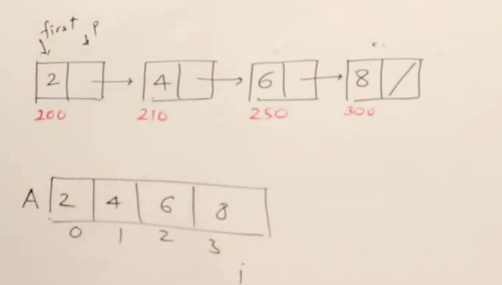 first p
2 4 6 8
200 210 250 300
A 2 4 6 8
0 1 2 3
i